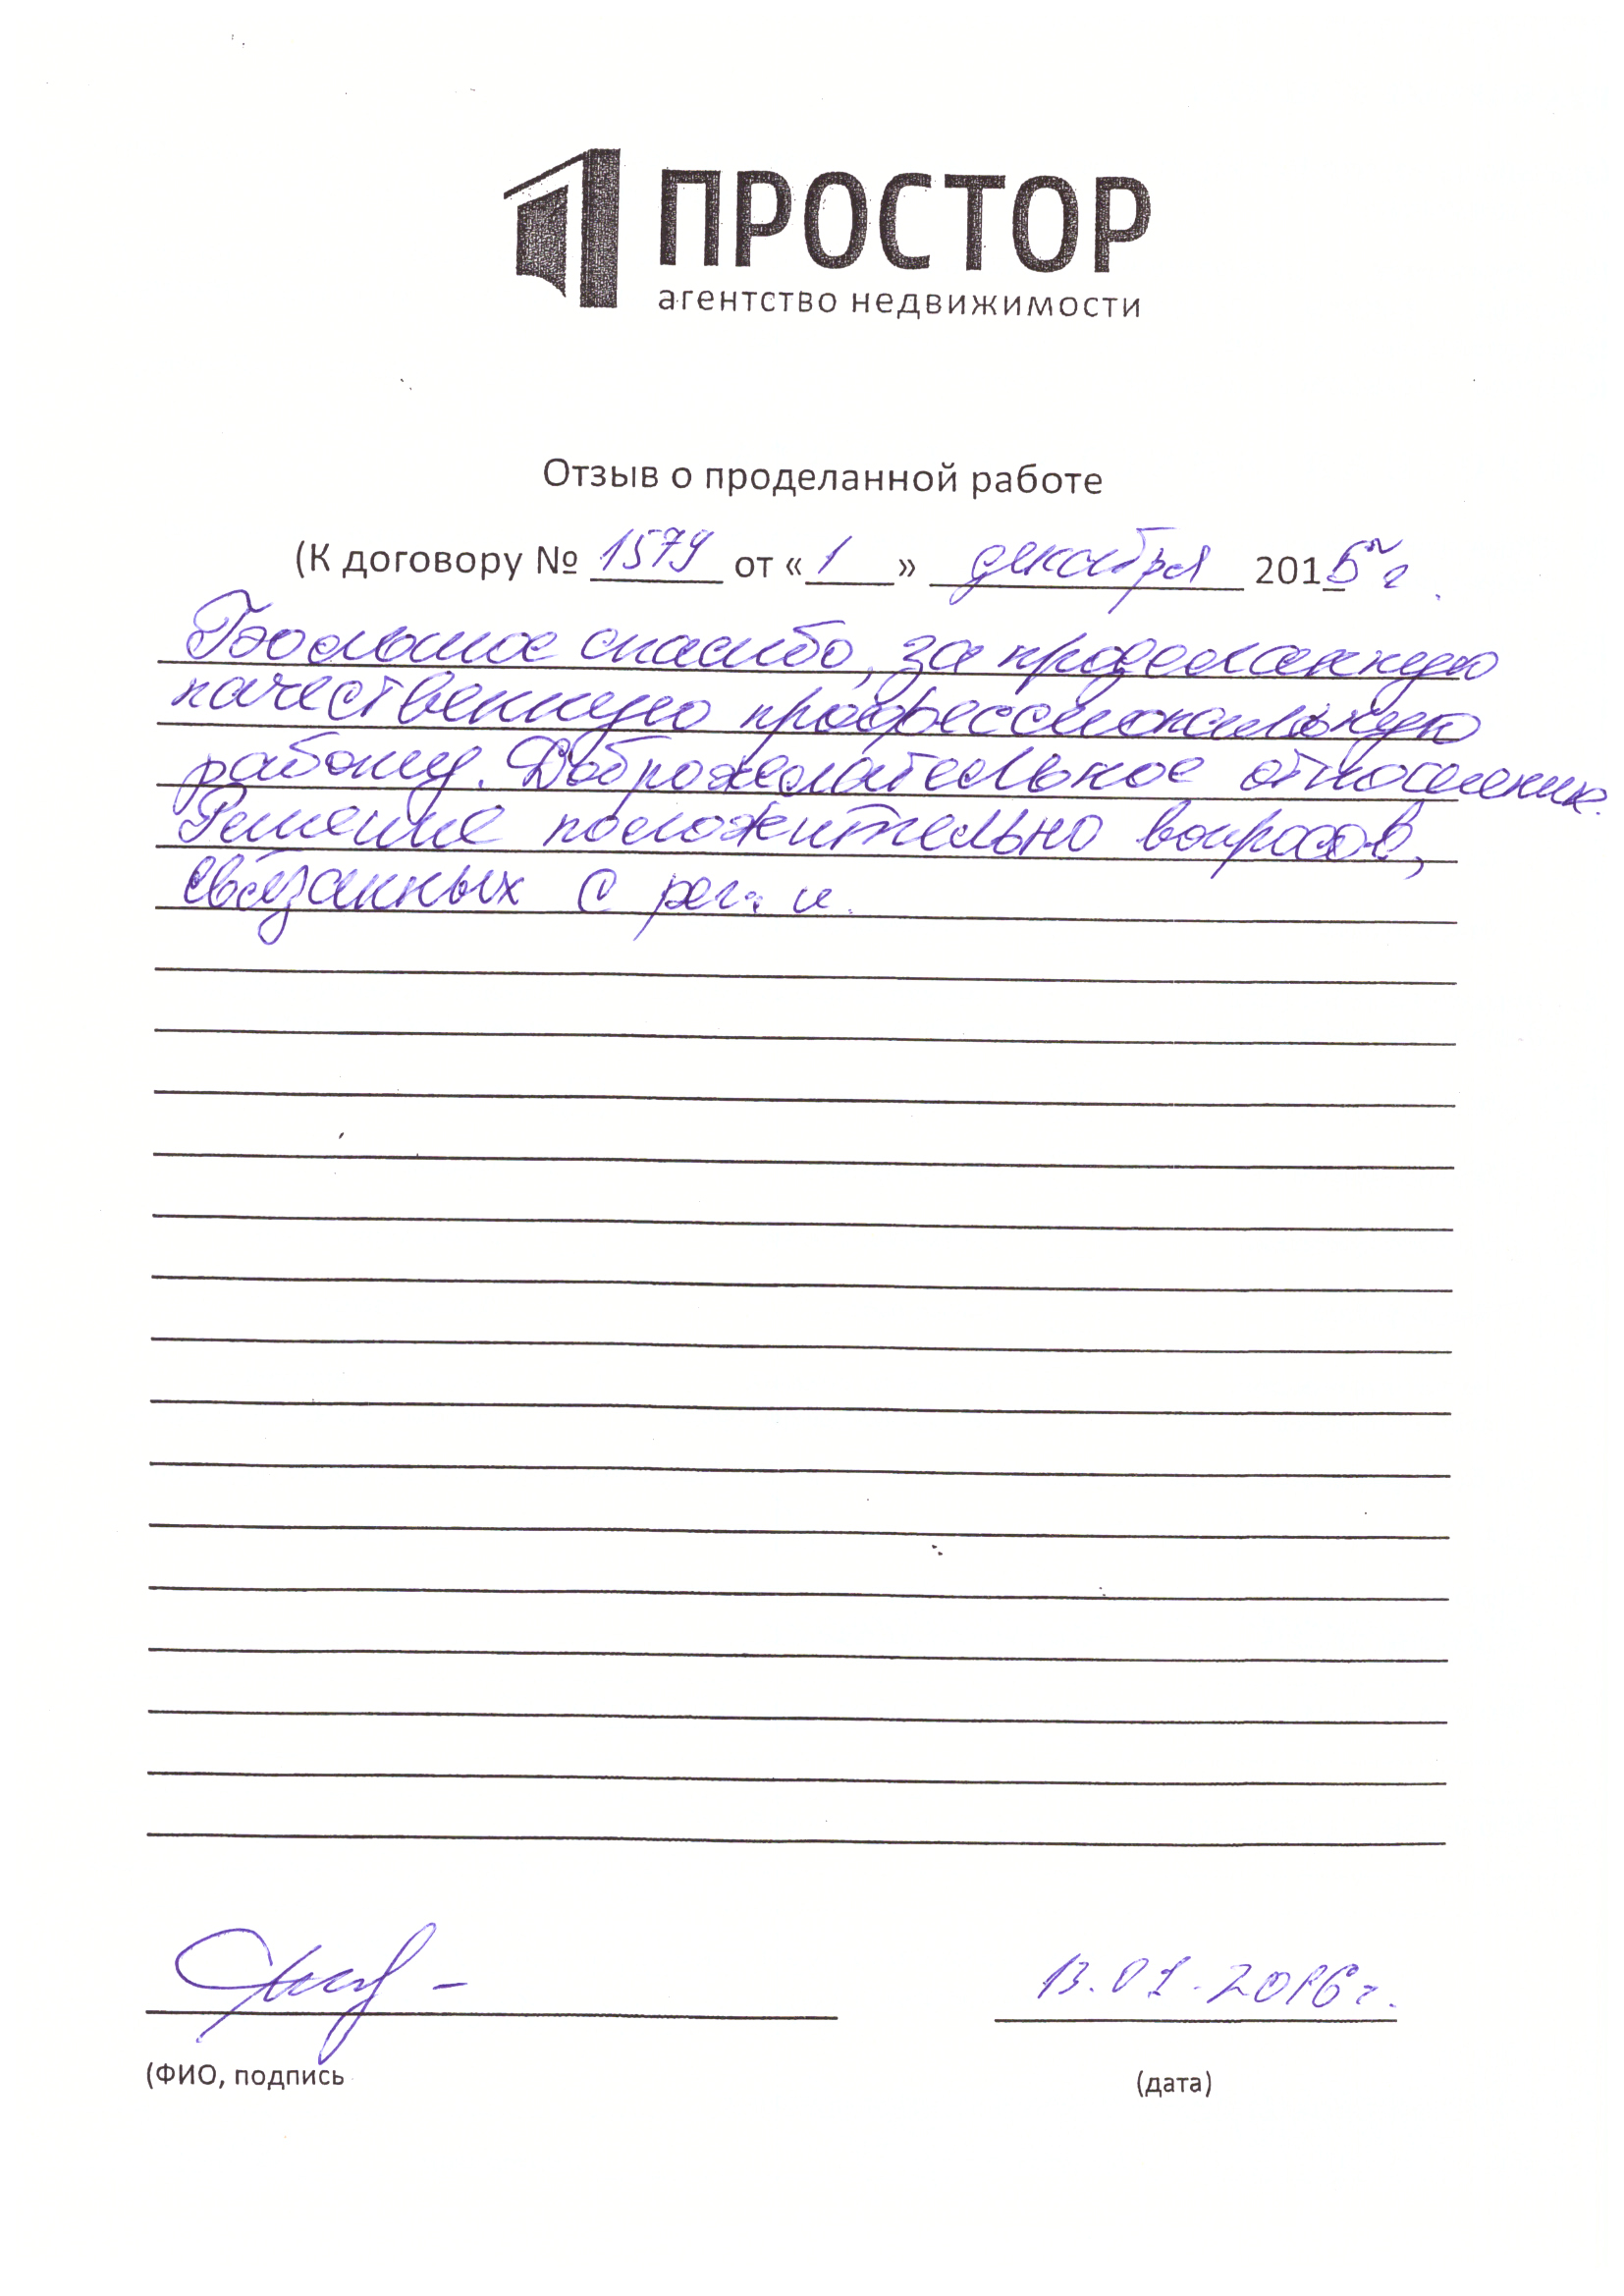 ПРОСТОР
агентство недвижимости
Отзыв о проделанной работе
(К договору № 1579 от «1» декабря 2015 г.
Большое спасибо, за проделанную
качественную профессиональную
работу. Доброжелательное отношение.
Решение положительно вопросов,
связанных с рег. и.
13.01.2016 г.
(ФИО, подпись
(дата)